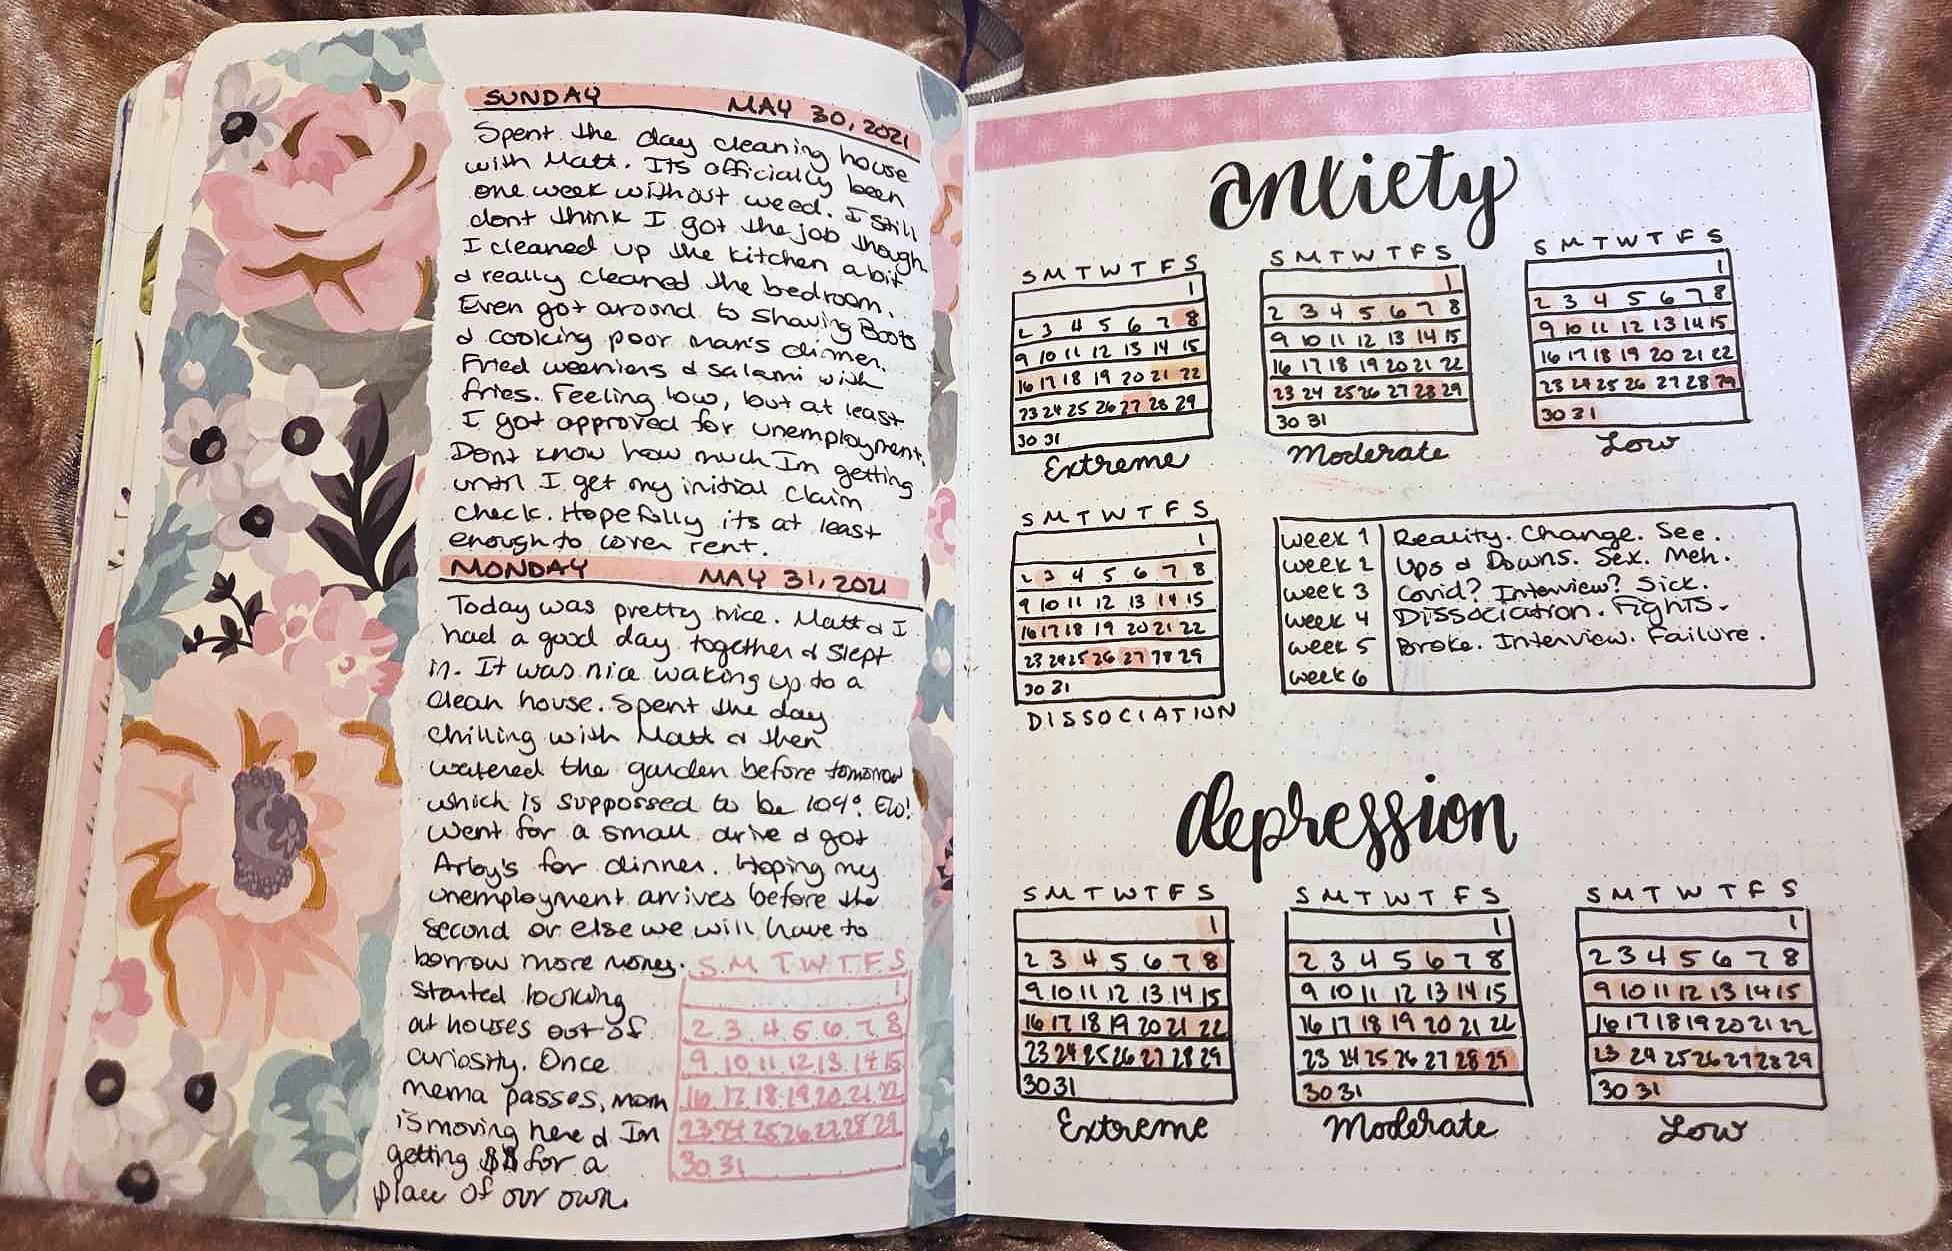 SUNDAY MAY 30, 2021
Spent the day cleaning house
with Matt. Its officially been
one week without weed. I still
dont think I got the job though
I cleaned up the kitchen a bit
& really cleaned the bedroom.
Even got around to shaving Boots
& cooking poor man's dinner.
Fried weeniers & salami with
fries. Feeling low, but at least
I got approved for unemployment.
Dont know how much Im getting
until I get my initial claim
check. Hopefully its at least
enough to cover rent.
MONDAY MAY 31, 2021
Today was pretty nice. Matt & I
had a good day together & slept
in. It was nice waking up to a
clean house. Spent the day
chilling with Matt & then
watered the garden before tomorrow
which is suppossed to be 104°. EW!
Went for a small drive & got
Arby's for dinner. Hoping my
unemployment arrives before the
second or else we will have to
borrow more money.
Started looking
at houses out of
curiosity. Once
mema passes, mom
is moving here & Im
getting $$ for a
place of our own.
S M T W T F S
1
2 3 4 5 6 7 8
9 10 11 12 13 14 15
16 17 18 19 20 21 22
23 24 25 26 27 28 29
30 31
anxiety
S M T W T F S
1
2 3 4 5 6 7 8
9 10 11 12 13 14 15
16 17 18 19 20 21 22
23 24 25 26 27 28 29
30 31
Extreme
S M T W T F S
1
2 3 4 5 6 7 8
9 10 11 12 13 14 15
16 17 18 19 20 21 22
23 24 25 26 27 28 29
30 31
Moderate
S M T W T F S
1
2 3 4 5 6 7 8
9 10 11 12 13 14 15
16 17 18 19 20 21 22
23 24 25 26 27 28 29
30 31
Low
S M T W T F S
1
2 3 4 5 6 7 8
9 10 11 12 13 14 15
16 17 18 19 20 21 22
23 24 25 26 27 28 29
30 31
DISSOCIATION
week 1 Reality. Change. See.
week 2 Ups & Downs. Sex. Meh.
week 3 Covid? Interview? Sick.
week 4 Dissociation. Fights.
week 5 Broke. Interview. Failure.
week 6
depression
S M T W T F S
1
2 3 4 5 6 7 8
9 10 11 12 13 14 15
16 17 18 19 20 21 22
23 24 25 26 27 28 29
30 31
Extreme
S M T W T F S
1
2 3 4 5 6 7 8
9 10 11 12 13 14 15
16 17 18 19 20 21 22
23 24 25 26 27 28 29
30 31
Moderate
S M T W T F S
1
2 3 4 5 6 7 8
9 10 11 12 13 14 15
16 17 18 19 20 21 22
23 24 25 26 27 28 29
30 31
Low